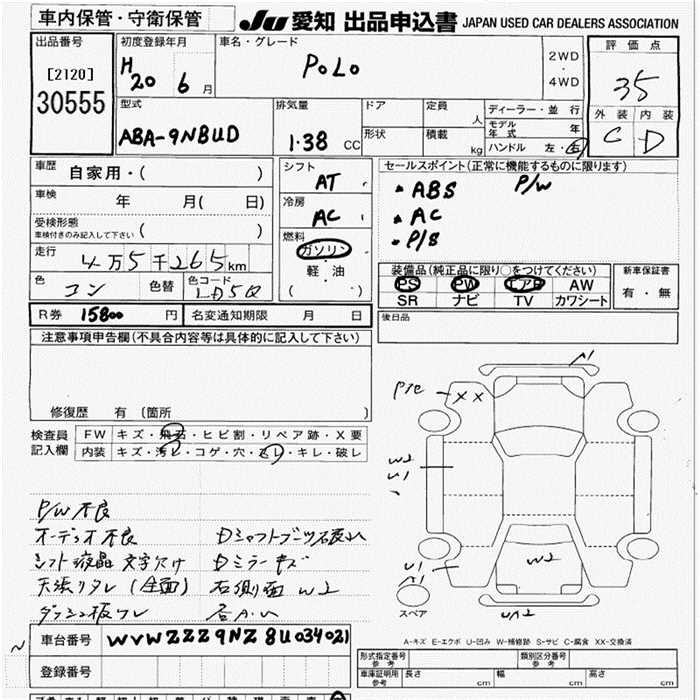 車内保管・守衛保管
JU 愛知 出品申込書 JAPAN USED CAR DEALERS ASSOCIATION
出品番号
[2120]
30555
初度登録年月
H 20 6 月
車名・グレード
POLO
2WD
・
4WD
評価点
35
外装 内装
C D
型式
ABA-9NBUD
排気量
1.38 CC
ドア
形状
定員
人
積載
kg
ディーラー・並行
モデル年式 年
ハンドル 左・右
車歴 自家用・( )
車検 年 月( 日)
受検形態
車検付きのみ記入して下さい ( )
走行
4万5千265km
色 コン 色替 色コード LD5Q
シフト
AT
冷房
AC
燃料
ガソリン
・
軽・油
( )
セールスポイント(正常に機能するものに限ります)
・ABS P/W
・AC
・P/S
装備品(純正品に限り○をつけてください)
PS PW エアB AW
SR ナビ TV カワシート
新車保証書
有・無
R券 15800 円 名変通知期限 月 日
後日品
注意事項申告欄(不具合内容等は具体的に記入して下さい)
修復歴 有 〔箇所 〕
検査員記入欄
FW キズ・飛石・ヒビ割・リペア跡・X要
内装 キズ・汚レ・コゲ・穴・スレ・キレ・破レ
P/W不良
オーディオ不良 Dシャフトブーツ破れ
シフト液晶文字欠け Dミラーキズ
天張りタレ(全面) 右側面W2
A1
XX
W2
U1
W2
U1
A1
UA2
スペア
A-キズ E-エクボ U-凹み W-補修跡 S-サビ C-腐食 XX-交換済
車台番号 WVWZZZ9NZ8U034021
登録番号
形式指定番号 参考
類別区分番号 参考
車庫証明用 参考 長さ cm 幅 cm 高さ cm